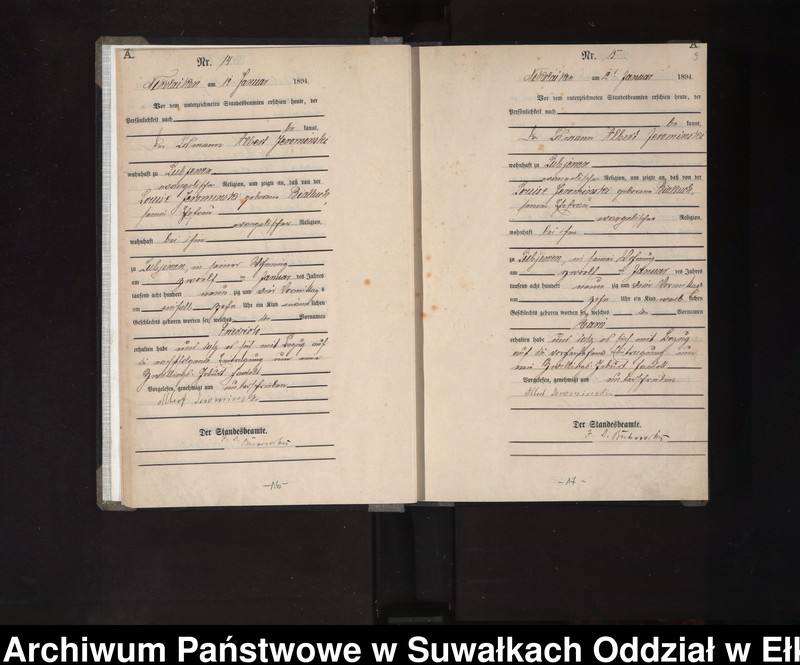 A.
Nr. 14
Nikolaiken am 12 Januar 1894.
Vor dem unterzeichneten Standesbeamten erschien heute, der
Persönlichkeit nach
be kannt,
Der Losmann Albert Jerominski
wohnhaft zu Lubjewen
evangelischer Religion, und zeigte an, daß von der
Louise Jerominski geborene Bialluch,
seiner Ehefrau
evangelischer Religion,
wohnhaft bei ihm
zu Lubjewen, in seiner Wohnung
am zwölf ten Januar des Jahres
tausend acht hundert neun zig und vier Vormittags
um zehn Uhr ein Kind männlichen
Geschlechts geboren worden sei, welches den Vornamen
Friedrich
erhalten habe und daß es sich mit Bezug auf
die nachfolgende Eintragung um eine
Zwillings-Geburt handelt
Vorgelesen, genehmigt und unterschrieben
Albert Jerominski
Der Standesbeamte.
-16-
A
Nr. 15
Nikolaiken am 12 Januar 1894.
Vor dem unterzeichneten Standesbeamten erschien heute, der
Persönlichkeit nach
be kannt,
Der Losmann Albert Jerominski
wohnhaft zu Lubjewen
evangelischer Religion, und zeigte an, daß von der
Louise Jerominski geborene Bialluch,
seiner Ehefrau
evangelischer Religion,
wohnhaft bei ihm
zu Lubjewen, in seiner Wohnung
am zwölf ten Januar des Jahres
tausend acht hundert neun zig und vier Vormittags
um zehn Uhr ein Kind weiblichen
Geschlechts geboren worden sei, welches den Vornamen
erhalten habe und daß es sich mit Bezug
auf die vorhergehende Eintragung um
eine Zwillings-Geburt handelt
Vorgelesen, genehmigt und unterschrieben
Albert Jerominski
Der Standesbeamte.
-17-
Archiwum Państwowe w Suwałkach Oddział w Ełk